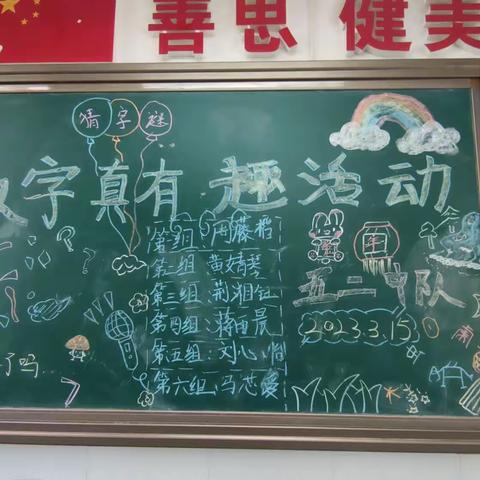 善思 健美
猜字谜
汉字真有趣活动
第一组:周藤哲
第二组:黄婧琴
第三组:荆湘钰
第四组:蒋雨晨
第五组:刘心怡
第六组:冯思爱
五二中队
2023.3.15
了吗